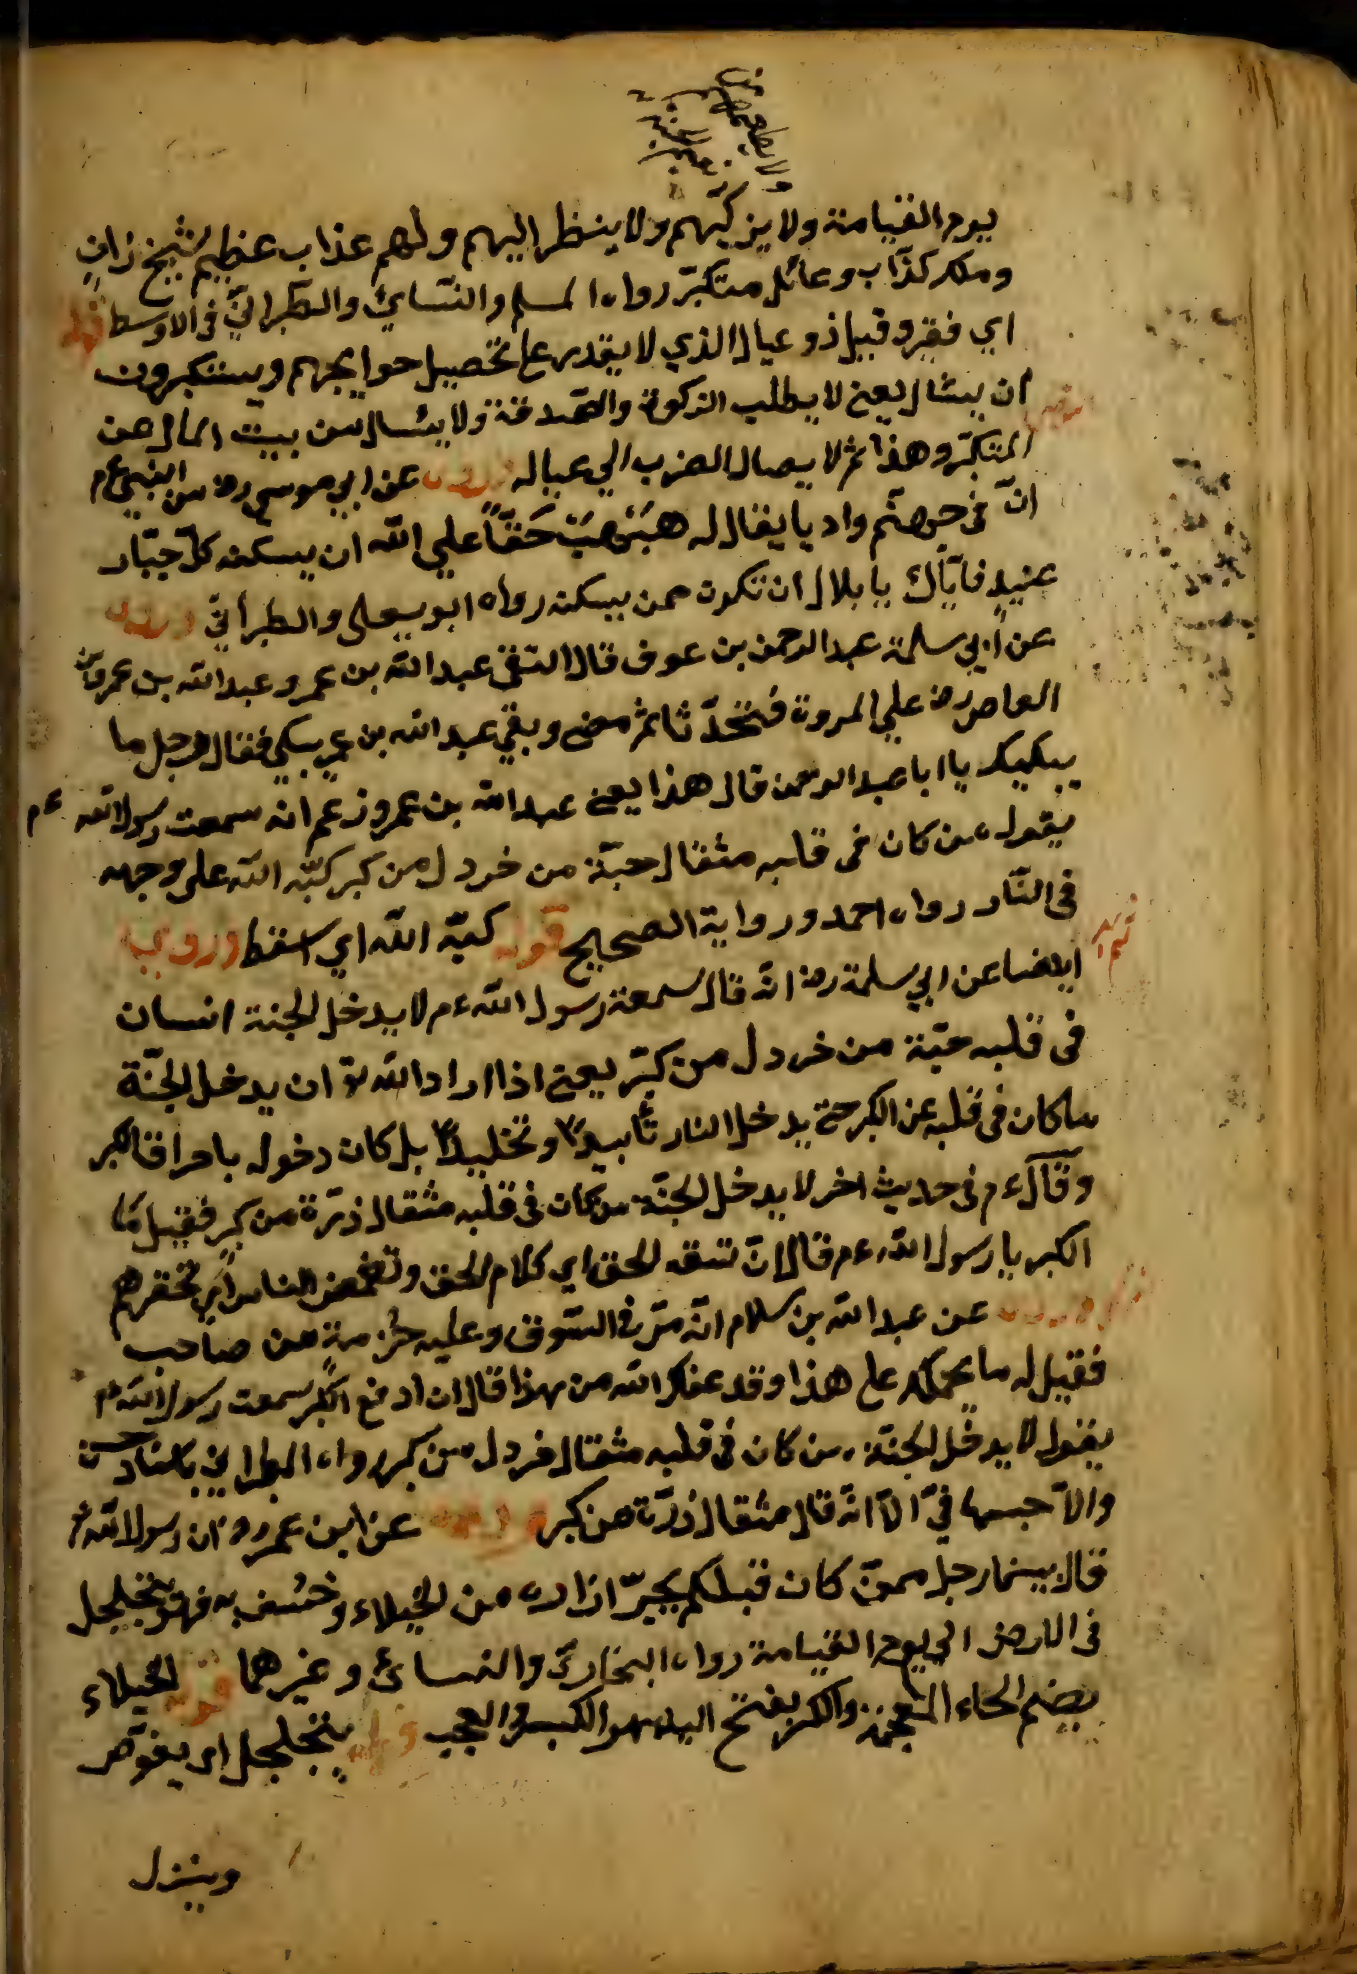 يوم القيامة ولا يزكّيهم ولا ينظر اليهم ولهم عذاب عظيم شيخ زانٍ
وملك كذّاب وعائل متكبّر رواه المسلم والنسائيّ والطبرانيّ فى الاوسط قوله
اي فقير وقيل ذو عيال الذي لا يقدر على تحصيل حوايجهم ويستكبرون
ان يسئال يعنى لا يطلب الزكوة والصّدقة ولا يسئال من بيت المال من
المتكبّر وهذا ثم لا يصال الضرب الي عياله وروى عن ابي موسى رض عن النبي ءم
انّ فى جهنّم واديا يقال له هَبْهَبْ حَقًّا علي اللّه ان يسكنه كلّ جبّار
عنيدٍ فايّاك يا بلال ان تكون ممن يسكنه رواه ابو يعلى والطبرانيّ وروى
عن ابي سلمة عبد الرحمن بن عوف قال التقى عبد اللّه بن عمر وعبد اللّه بن عمرو بن
العاص رض علي المروة فتحدّثا ثم مضى وبقي عبد اللّه بن عمر يبكي فقال رجل ما
يبكيك يا ابا عبد الرحمن قال هذا يعنى عبد اللّه بن عمرو زعم انه سمعت رسول اللّه ءم
يقول من كان فى قلبه مثقال حبّة من خردل من كبر كبّه اللّه على وجهه
فى النّار رواه احمد ورواية الصحيح قوله كبّه اللّه اي اسقط وروي
ايضا عن ابي سلمة رض انّه قال سمعت رسول اللّه ءم لا يدخل الجنة انسان
فى قلبه حبّة من خردل من كبر يعنى اذا اراد اللّه تع ان يدخل الجنّة
ما كان فى قلبه عن الكبر حتى يدخل النار تأبيدًا وتخليدًا بل كان دخوله باحراق الكبر
وقال ءم فى حديث اخر لا يدخل الجنّة من كان فى قلبه مثقال ذرّة من كبر فقيل ما
الكبر يا رسول اللّه ءم قال ان تسفه الحق اي كلام الحق وتغمض الناس اي تحقرهم
عن عبد اللّه بن سلام انّه مرّ فى السّوق وعليه حُزمة من صاحب
فقيل له ما يحملك على هذا وقد عفاك اللّه من هذا قال ان ادفع الكبر سمعت رسول اللّه ءم
يقول لا يدخل الجنّة من كان فى قلبه مثقال خردل من كبر رواه الطبراني باسناد حسن
والا انّه قال مثقال ذرّة من كبر عن ابن عمر رض ان رسول اللّه ءم
قال بينما رجل ممن كان قبلكم يجرّ ازاره من الخيلاء وخسف به فهو يتجلجل
فى الارض الي يوم القيامة رواه البخاريّ والنسائيّ وغيرهما قوله الخيلاء
بضم الخاء المعجمة والكبر بفتح الياء هو الكبر والعجب قوله يتجلجل اي يغوص
وينزل